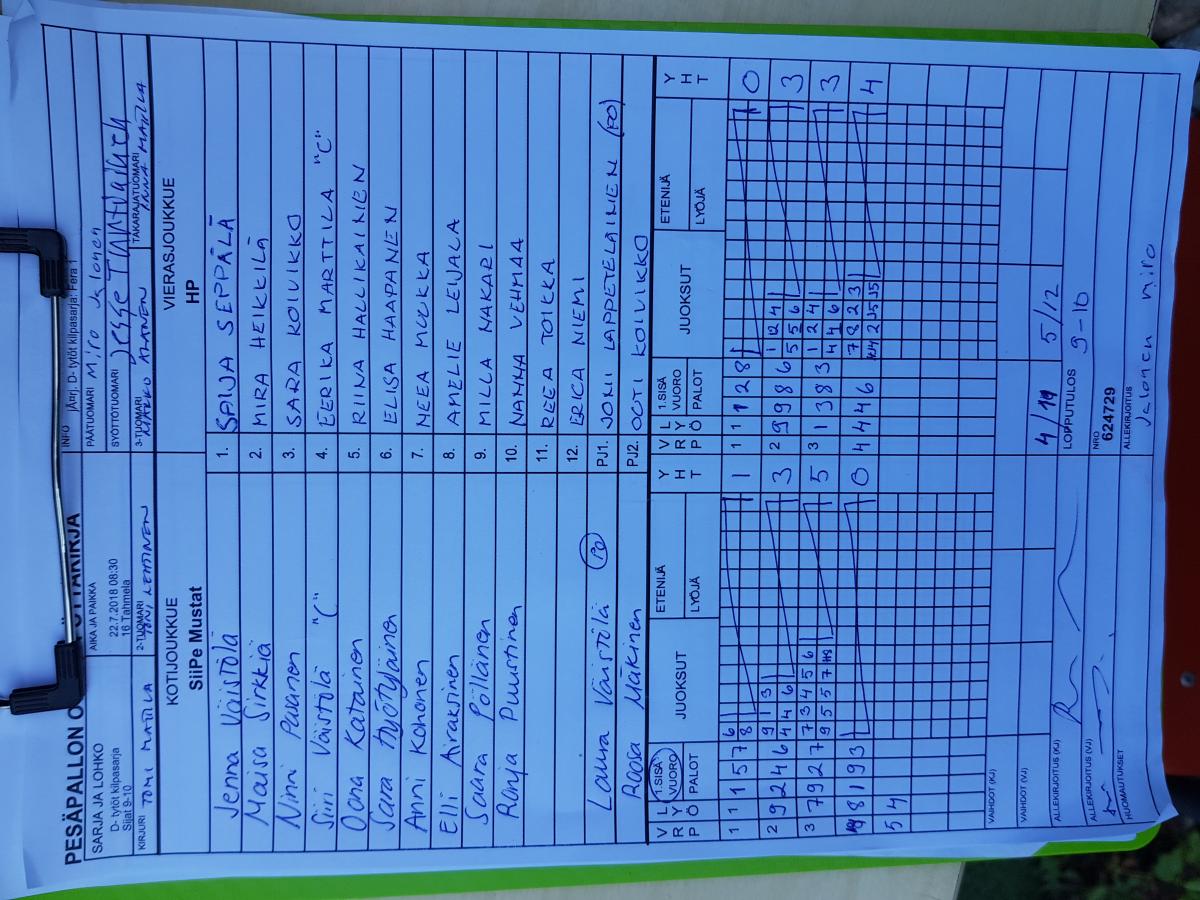 PESÄPALLON O
SARJA JA LOHKO
D- tytöt kilpasarja
Sijat 9-10
AIKA JA PAIKKA
22.7.2018 08:30
16 Tahmela
INFO
Änrj: D- tytöt kilpasarja: Fera 1
PÄÄTUOMARI Miro Jalonen
SYÖTTÖTUOMARI
KIRJURI TOMI MATTILA
2-TUOMARI TONI LEHTINEN
3-TUOMARI
TAKARAJATUOMARI
KOTIJOUKKUE
SiiPe Mustat
VIERASJOUKKUE
HP
Jenna Väistölä 1. SAIJA SEPPÄLÄ
Maisa Sirkkiä 2. MIRA HEIKKILÄ
Ninni Pavanen 3. SARA KOIVIKKO
Siiri Väistölä "C" 4. EERIKA MARTTILA "C"
Oona Katainen 5. RIINA HALLIKAINEN
Sara Hyötyläinen 6. ELISA HAAPANEN
Anni Kohonen 7. NEEA MUUKKA
Elli Airaksinen 8. AMELIE LEIJALA
Saara Pölläinen 9. MILLA NAKARI
Ronja Puustinen 10. NANNA VEHMAA
11. REEA TOIKKA
12. ERICA NIEMI
Laura Väistölä PJ1. JONI LAPPETELÄINEN
Roosa Mäkinen PJ2. OUTI KOIVIKKO
V R P
L Y Ö
1.SISÄ VUORO
PALOT
JUOKSUT
ETENIJÄ
LYÖJÄ
Y H T
V R P
L Y Ö
1.SISÄ VUORO
PALOT
JUOKSUT
ETENIJÄ
LYÖJÄ
Y H T
1 1 1 5 7 6 8 1 1 1 1 2 8 0
2 9 2 4 6 9 1 3 4 4 6 3 2 9 9 8 6 1 12 4 5 5 6 3
3 7 9 2 7 7 3 4 5 6 9 5 5 7 5 3 1 3 8 3 1 2 4 4 4 6 3
8 1 9 3 0 4 4 4 6 7 8 2 3 4
5 4
VAIHDOT (KJ)
VAIHDOT (VJ)
4/11 5/12
ALLEKIRJOITUS (KJ)
LOPPUTULOS 9-10
ALLEKIRJOITUS (VJ)
NRO
624729
HUOMAUTUKSET
ALLEKIRJOITUS
Jalonen Miro